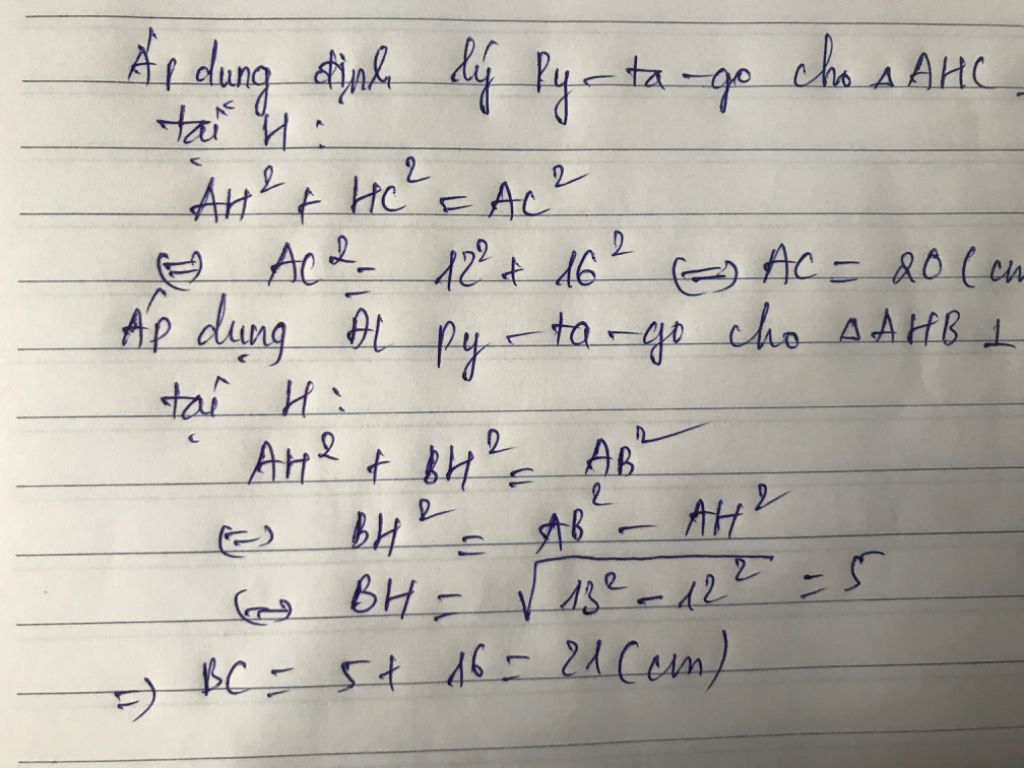 Áp dụng định lý Py-ta-go cho ΔAHC
tại H:
AH² + HC² = AC²
⇔ AC² = 12² + 16² ⇔ AC = 20 (cm
Áp dụng ĐL Py-ta-go cho ΔAHB ⊥
tại H:
AH² + BH² = AB²
⇔ BH² = AB² - AH²
⇔ BH = √(13² - 12²) = 5
⇒ BC = 5 + 16 = 21 (cm)